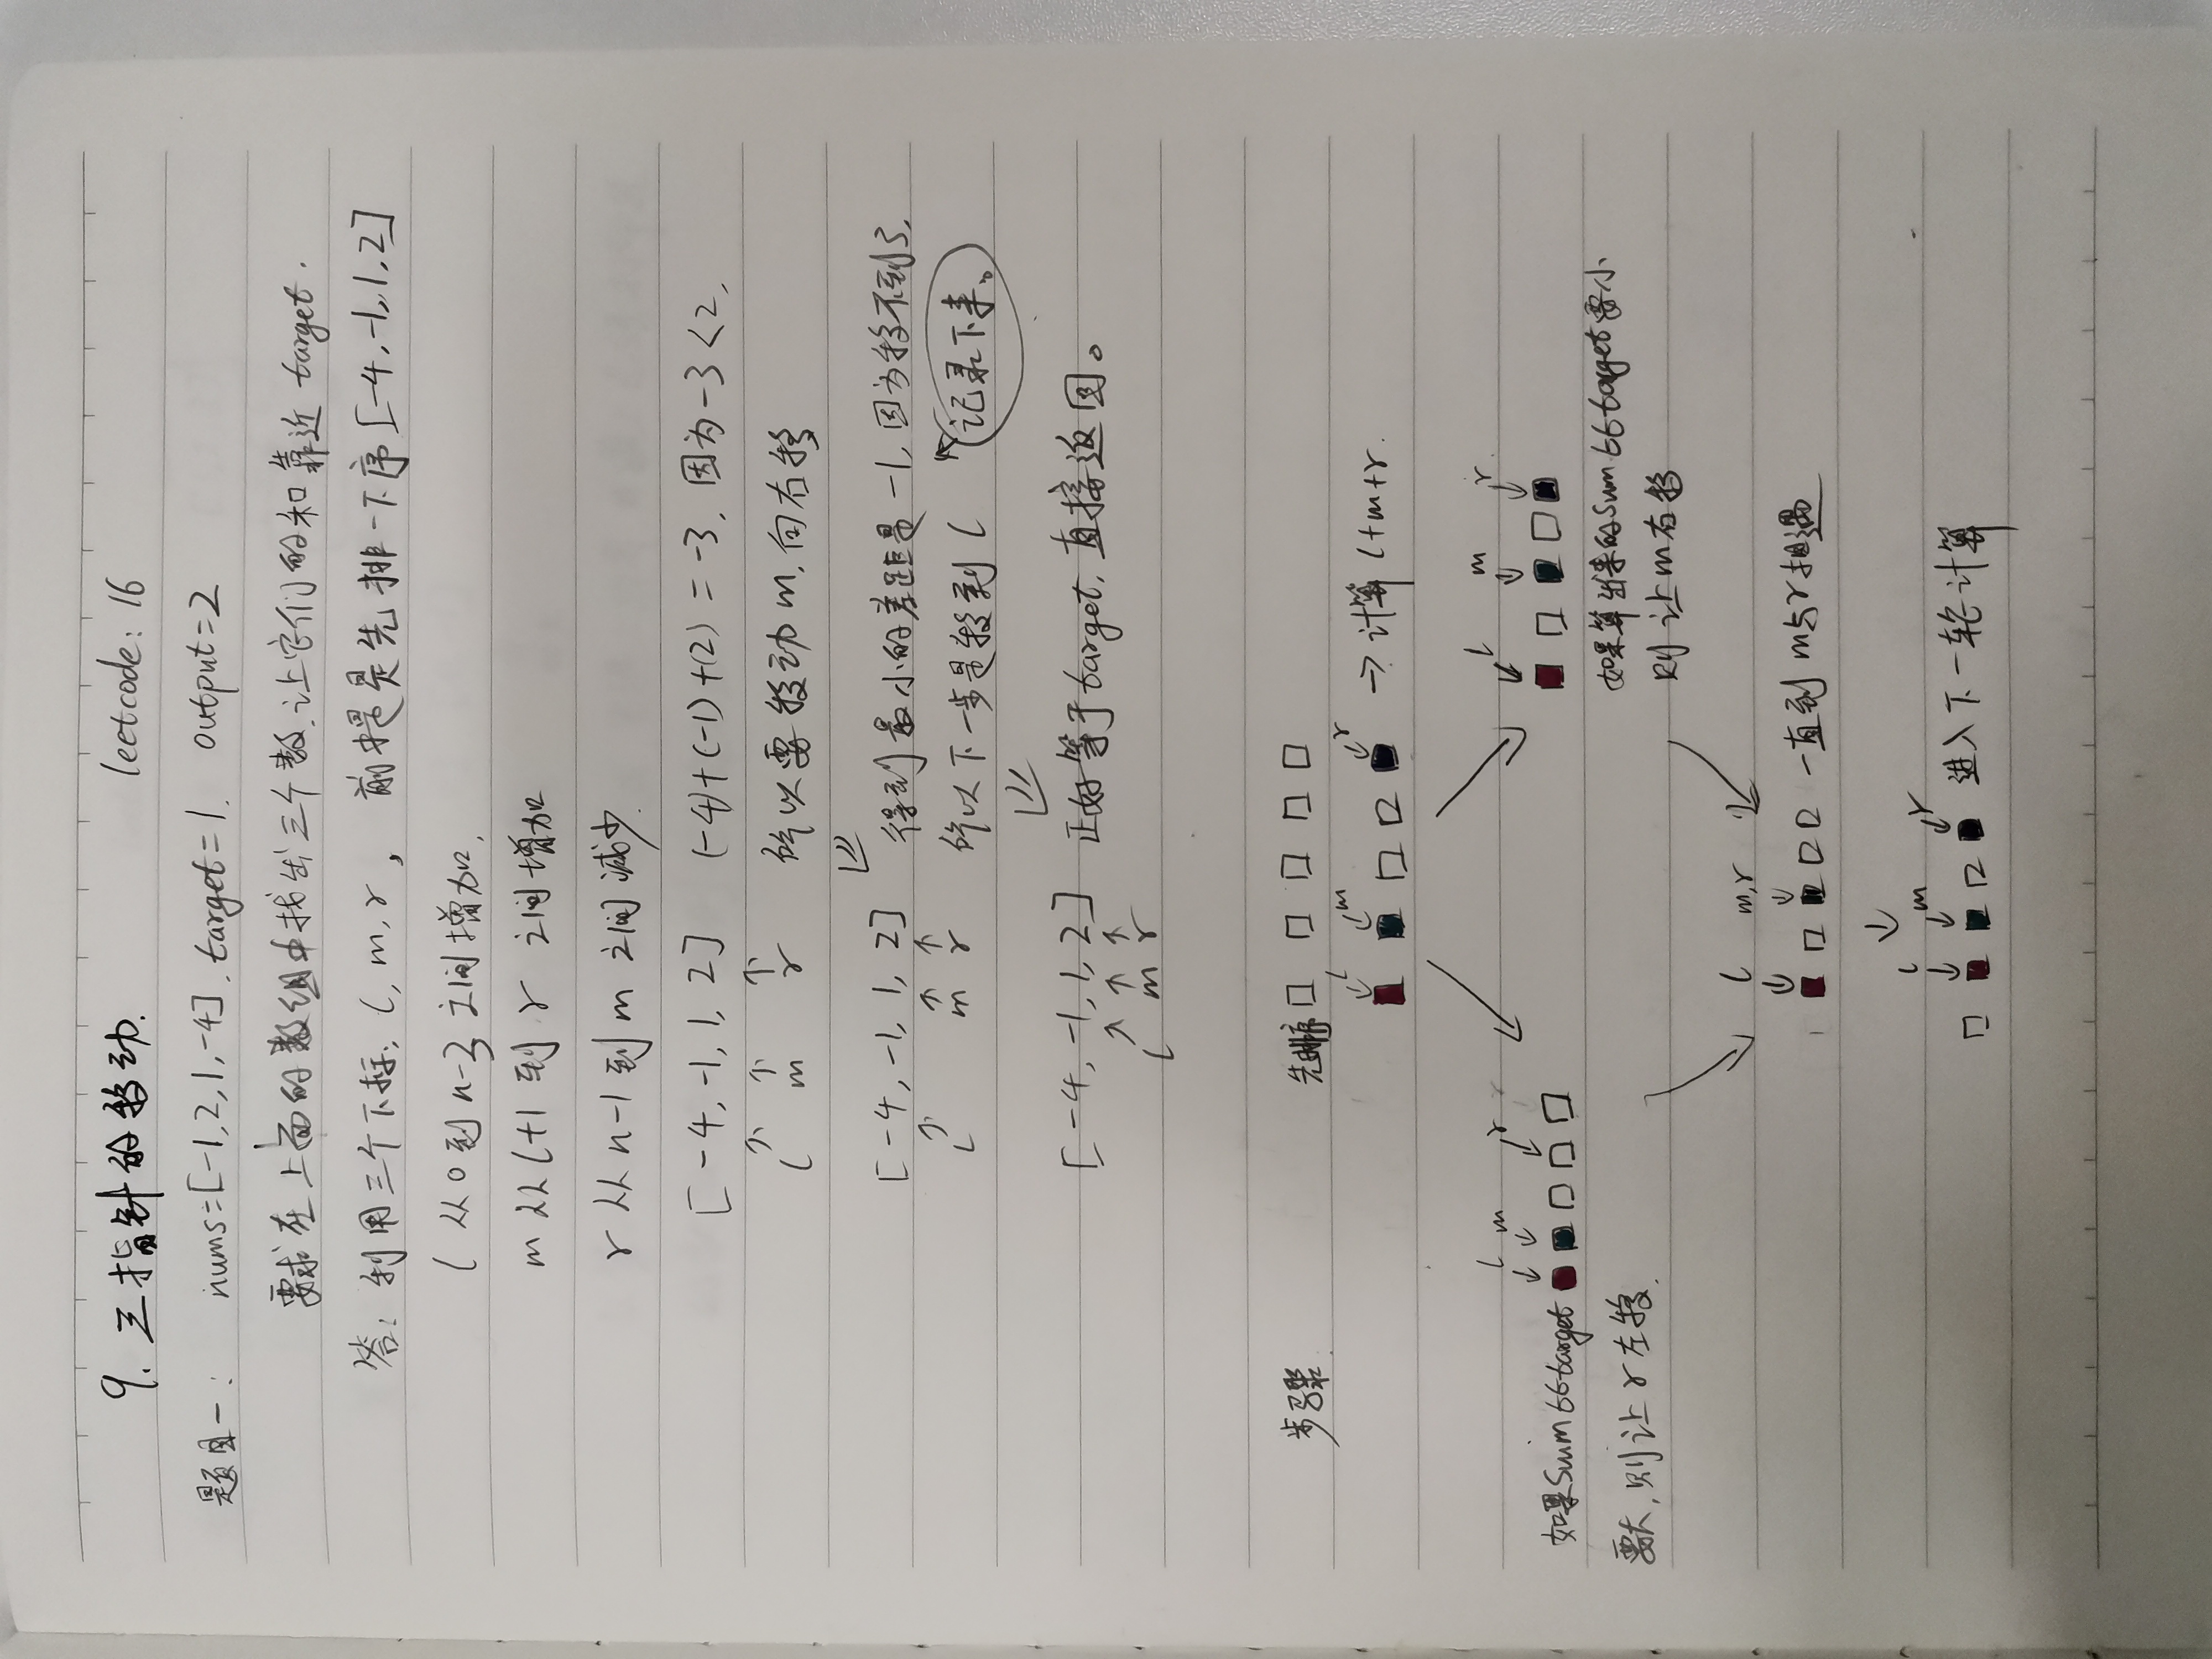 9. 三指针的移动. leetcode: 16
题目一: nums=[-1,2,1,-4]. target=1. output=2
要求在上面的数组中找出三个数.让它们的和靠近 target.
答: 利用三个下标: l, m, r, 前提是先排一下序[-4,-1,1,2]
l 从0到n-3之间增加,
m 从l+1 到 r 之间增加
r 从n-1到m 之间减少.
[-4, -1, 1, 2] (-4)+(-1)+(2) = -3, 因为-3<2,
l m r 所以要移动m,向右移
[-4, -1, 1, 2] 得到最小的差距是-1,因为移不到了,
l m r 所以下一步是移到 l 记录下来。
[-4, -1, 1, 2] 正好等于target,直接返回。
l m r
步骤. 先排序
l m r
→ 计算 l+m+r.
l m r r
如果sum比target
要大,则让r左移.
l m r
如果算出来的sum比target要小
则让m右移
l m,r
一直到m与r相遇
l m r
进入下一轮计算